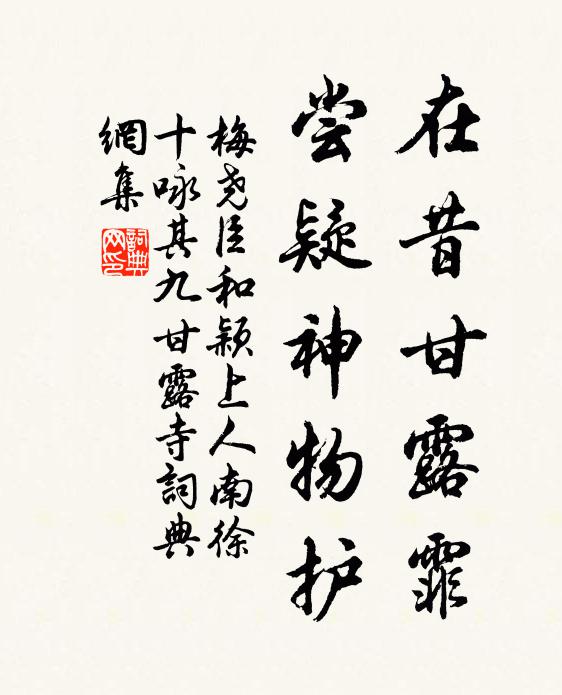 在昔甘露霏
尝疑神物护
梅尧臣和颖上人南徐
十咏其九甘露寺詞典
網集
詞典网印